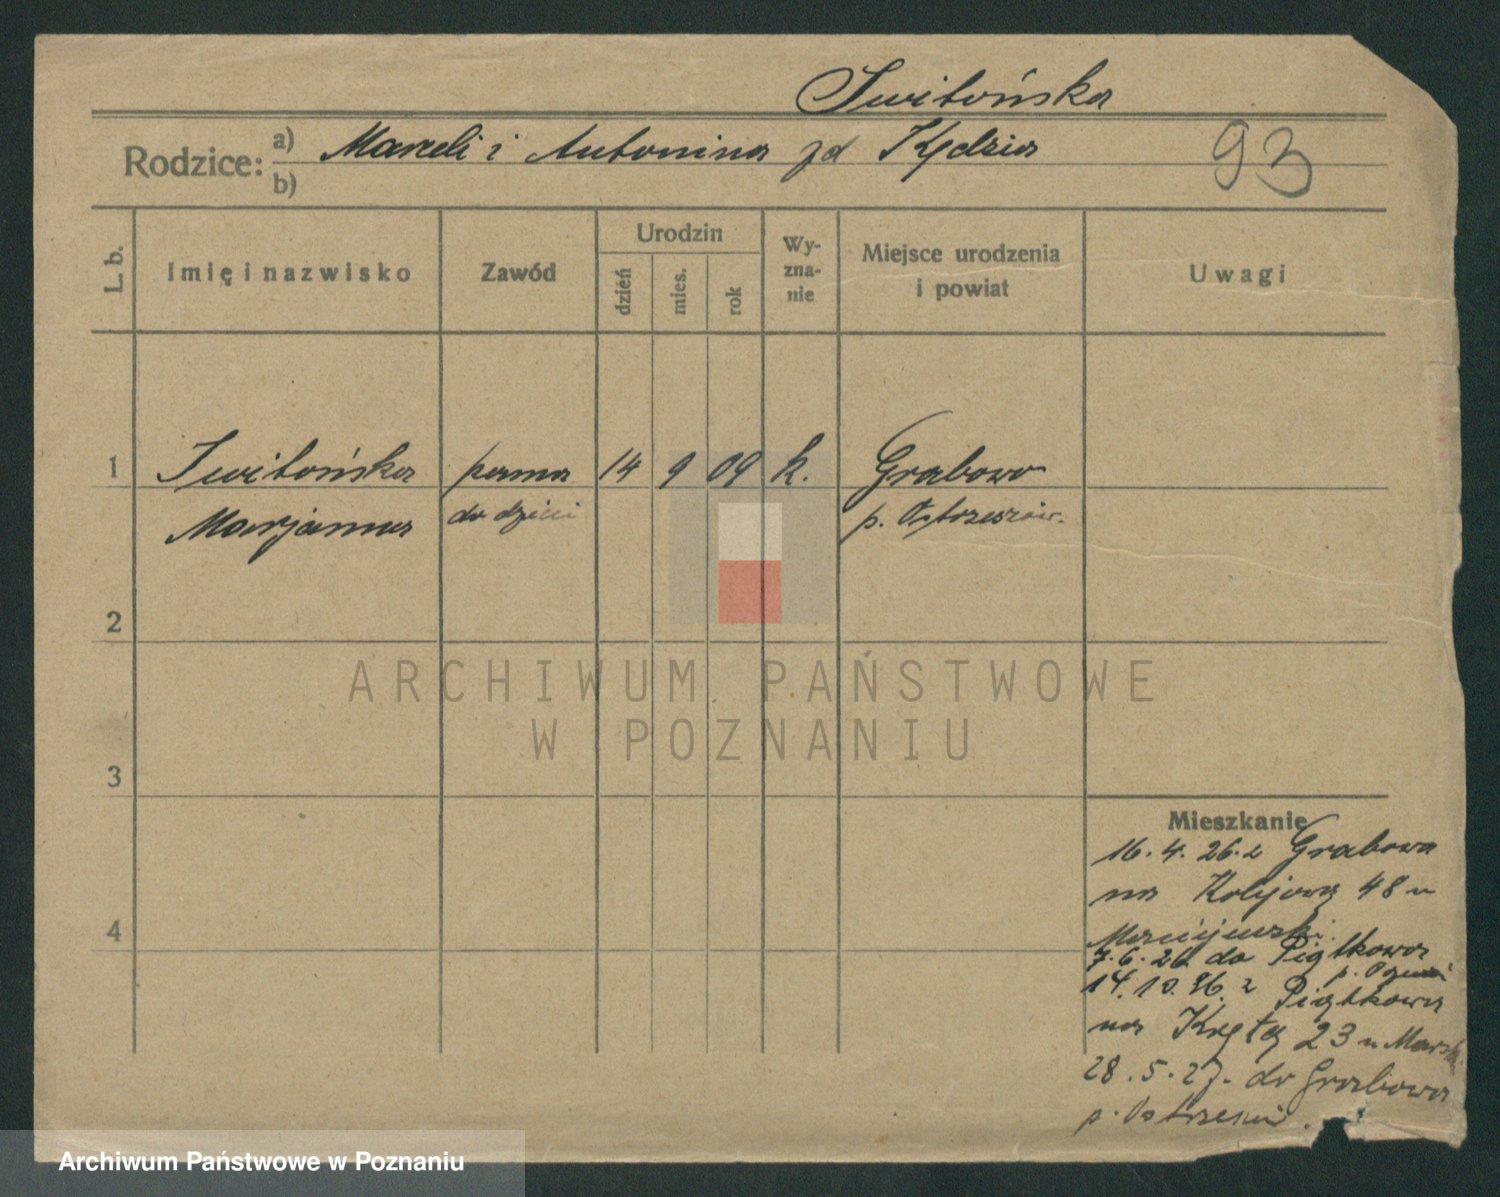 Iwitońska
Rodzice:
a) Marceli i Antonina zd Kędzia
b)
93
L. b.
Imię i nazwisko
Zawód
Urodzin
dzień
mies.
rok
Wy-
zna-
nie
Miejsce urodzenia
i powiat
Uwagi
1
Iwitońska
Marjanna
panna
do dzieci
14
9
09
k.
Grabowo
p. Ostrzeszów.
2
3
4
Mieszkanie
16.4.26. z Grabowa
na Kolejową 48 u
Maciejewski.
7.6.26 do Piątkowa
14.10.26. z Piątkowa
na Krętą 23 u
28.5.27. do Grabowa
p.
ARCHIWUM PAŃSTWOWE
W POZNANIU
Archiwum Państwowe w Poznaniu